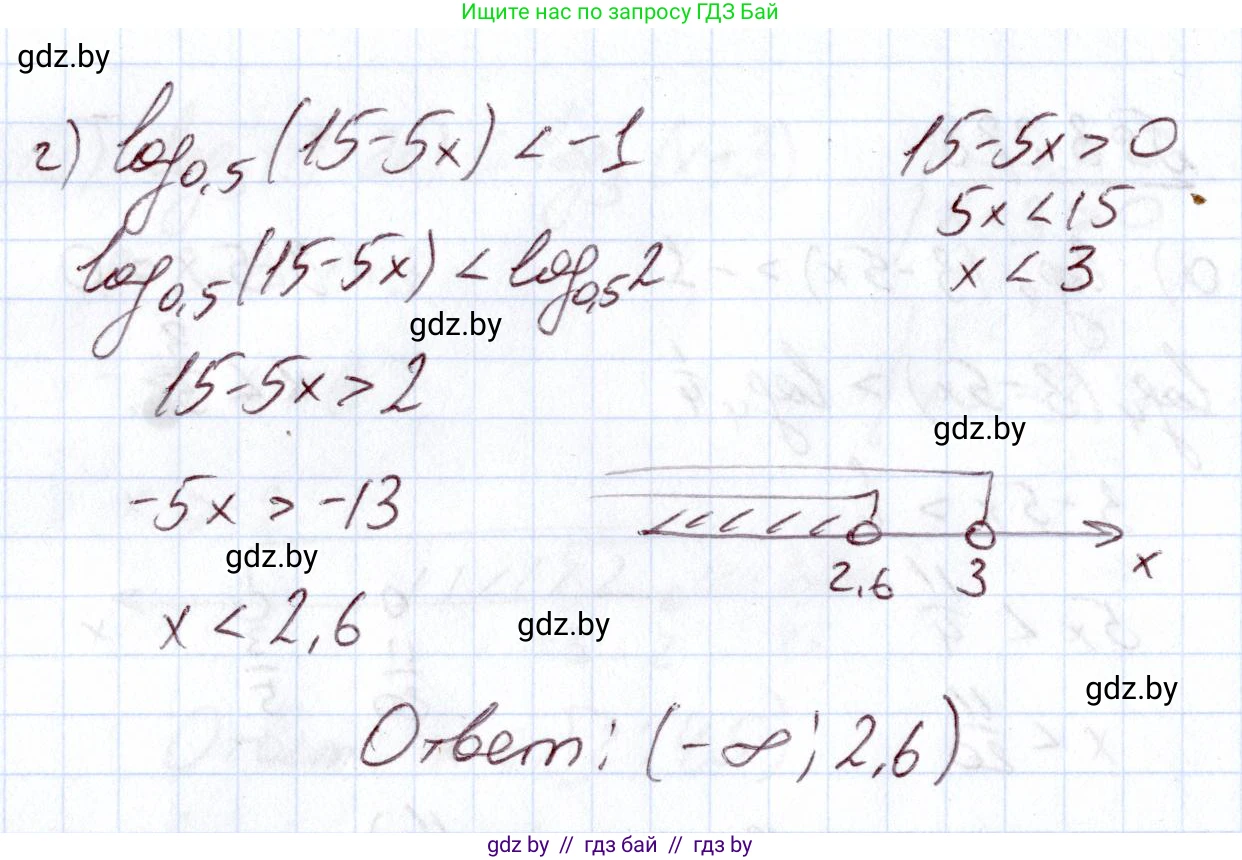 Ищите нас по запросу ГДЗ Бай
gdz.by
г) log0,5 (15-5x) < -1
15-5x > 0
5x < 15
log0,5 (15-5x) < log0,5 2
x < 3
gdz.by
15-5x > 2
gdz.by
-5x > -13
gdz.by
2,6 3 x
x < 2,6
gdz.by
gdz.by
Ответ: (-∞; 2,6)
gdz.by // гдз бай // гдз by